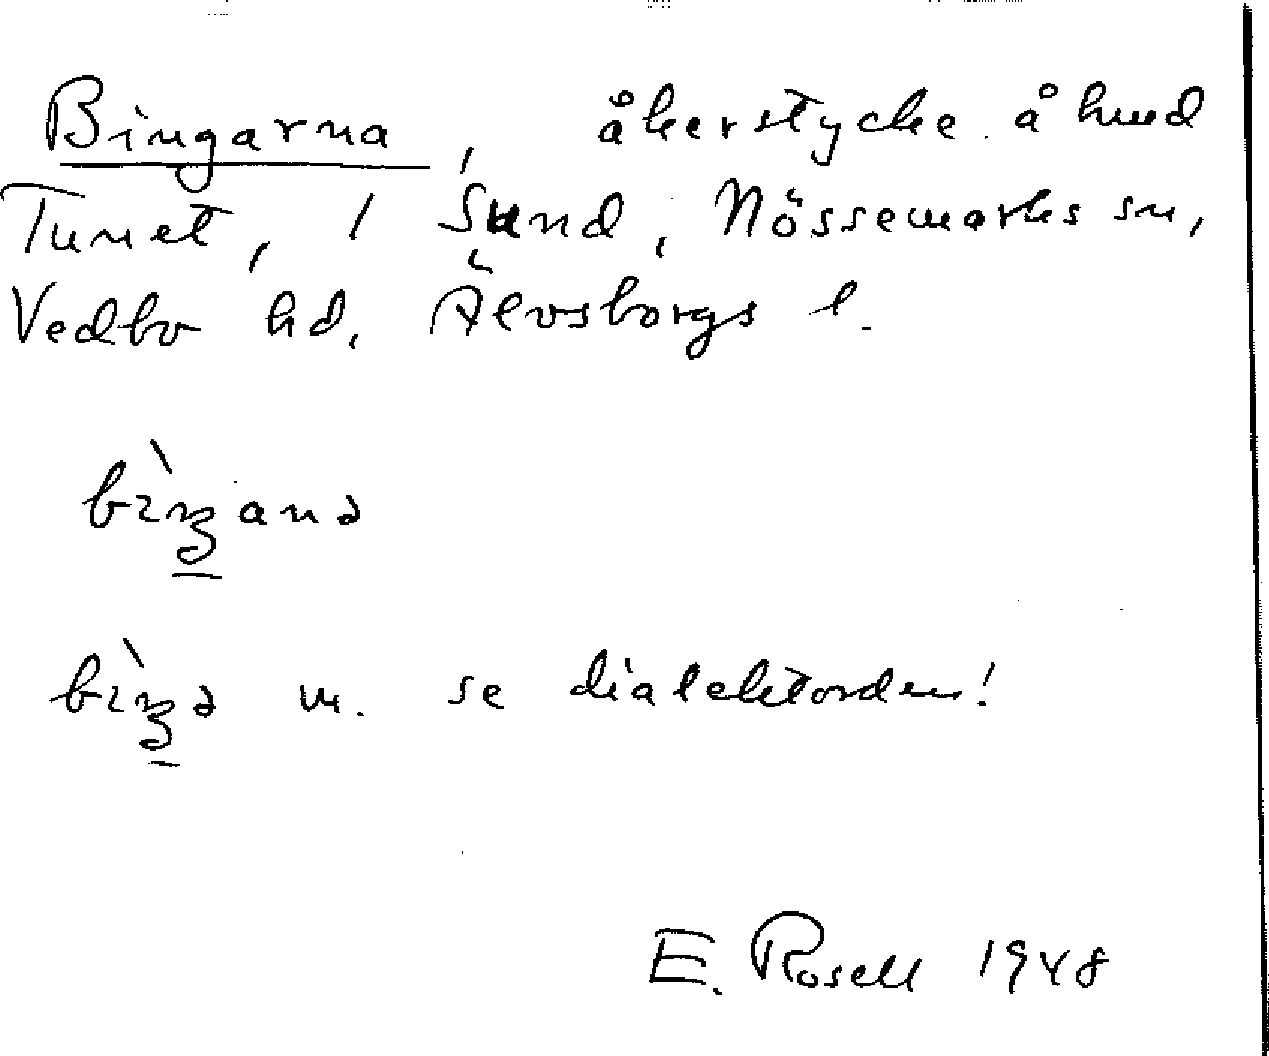 Bingarna, åkerstycke å hmd
Tunet, 1 Sund, Nössemarks sn,
Vedbo hd, Älvsborgs l.
bìŋanə
bìŋə m. se dialektorden!
E. Rosell 1948